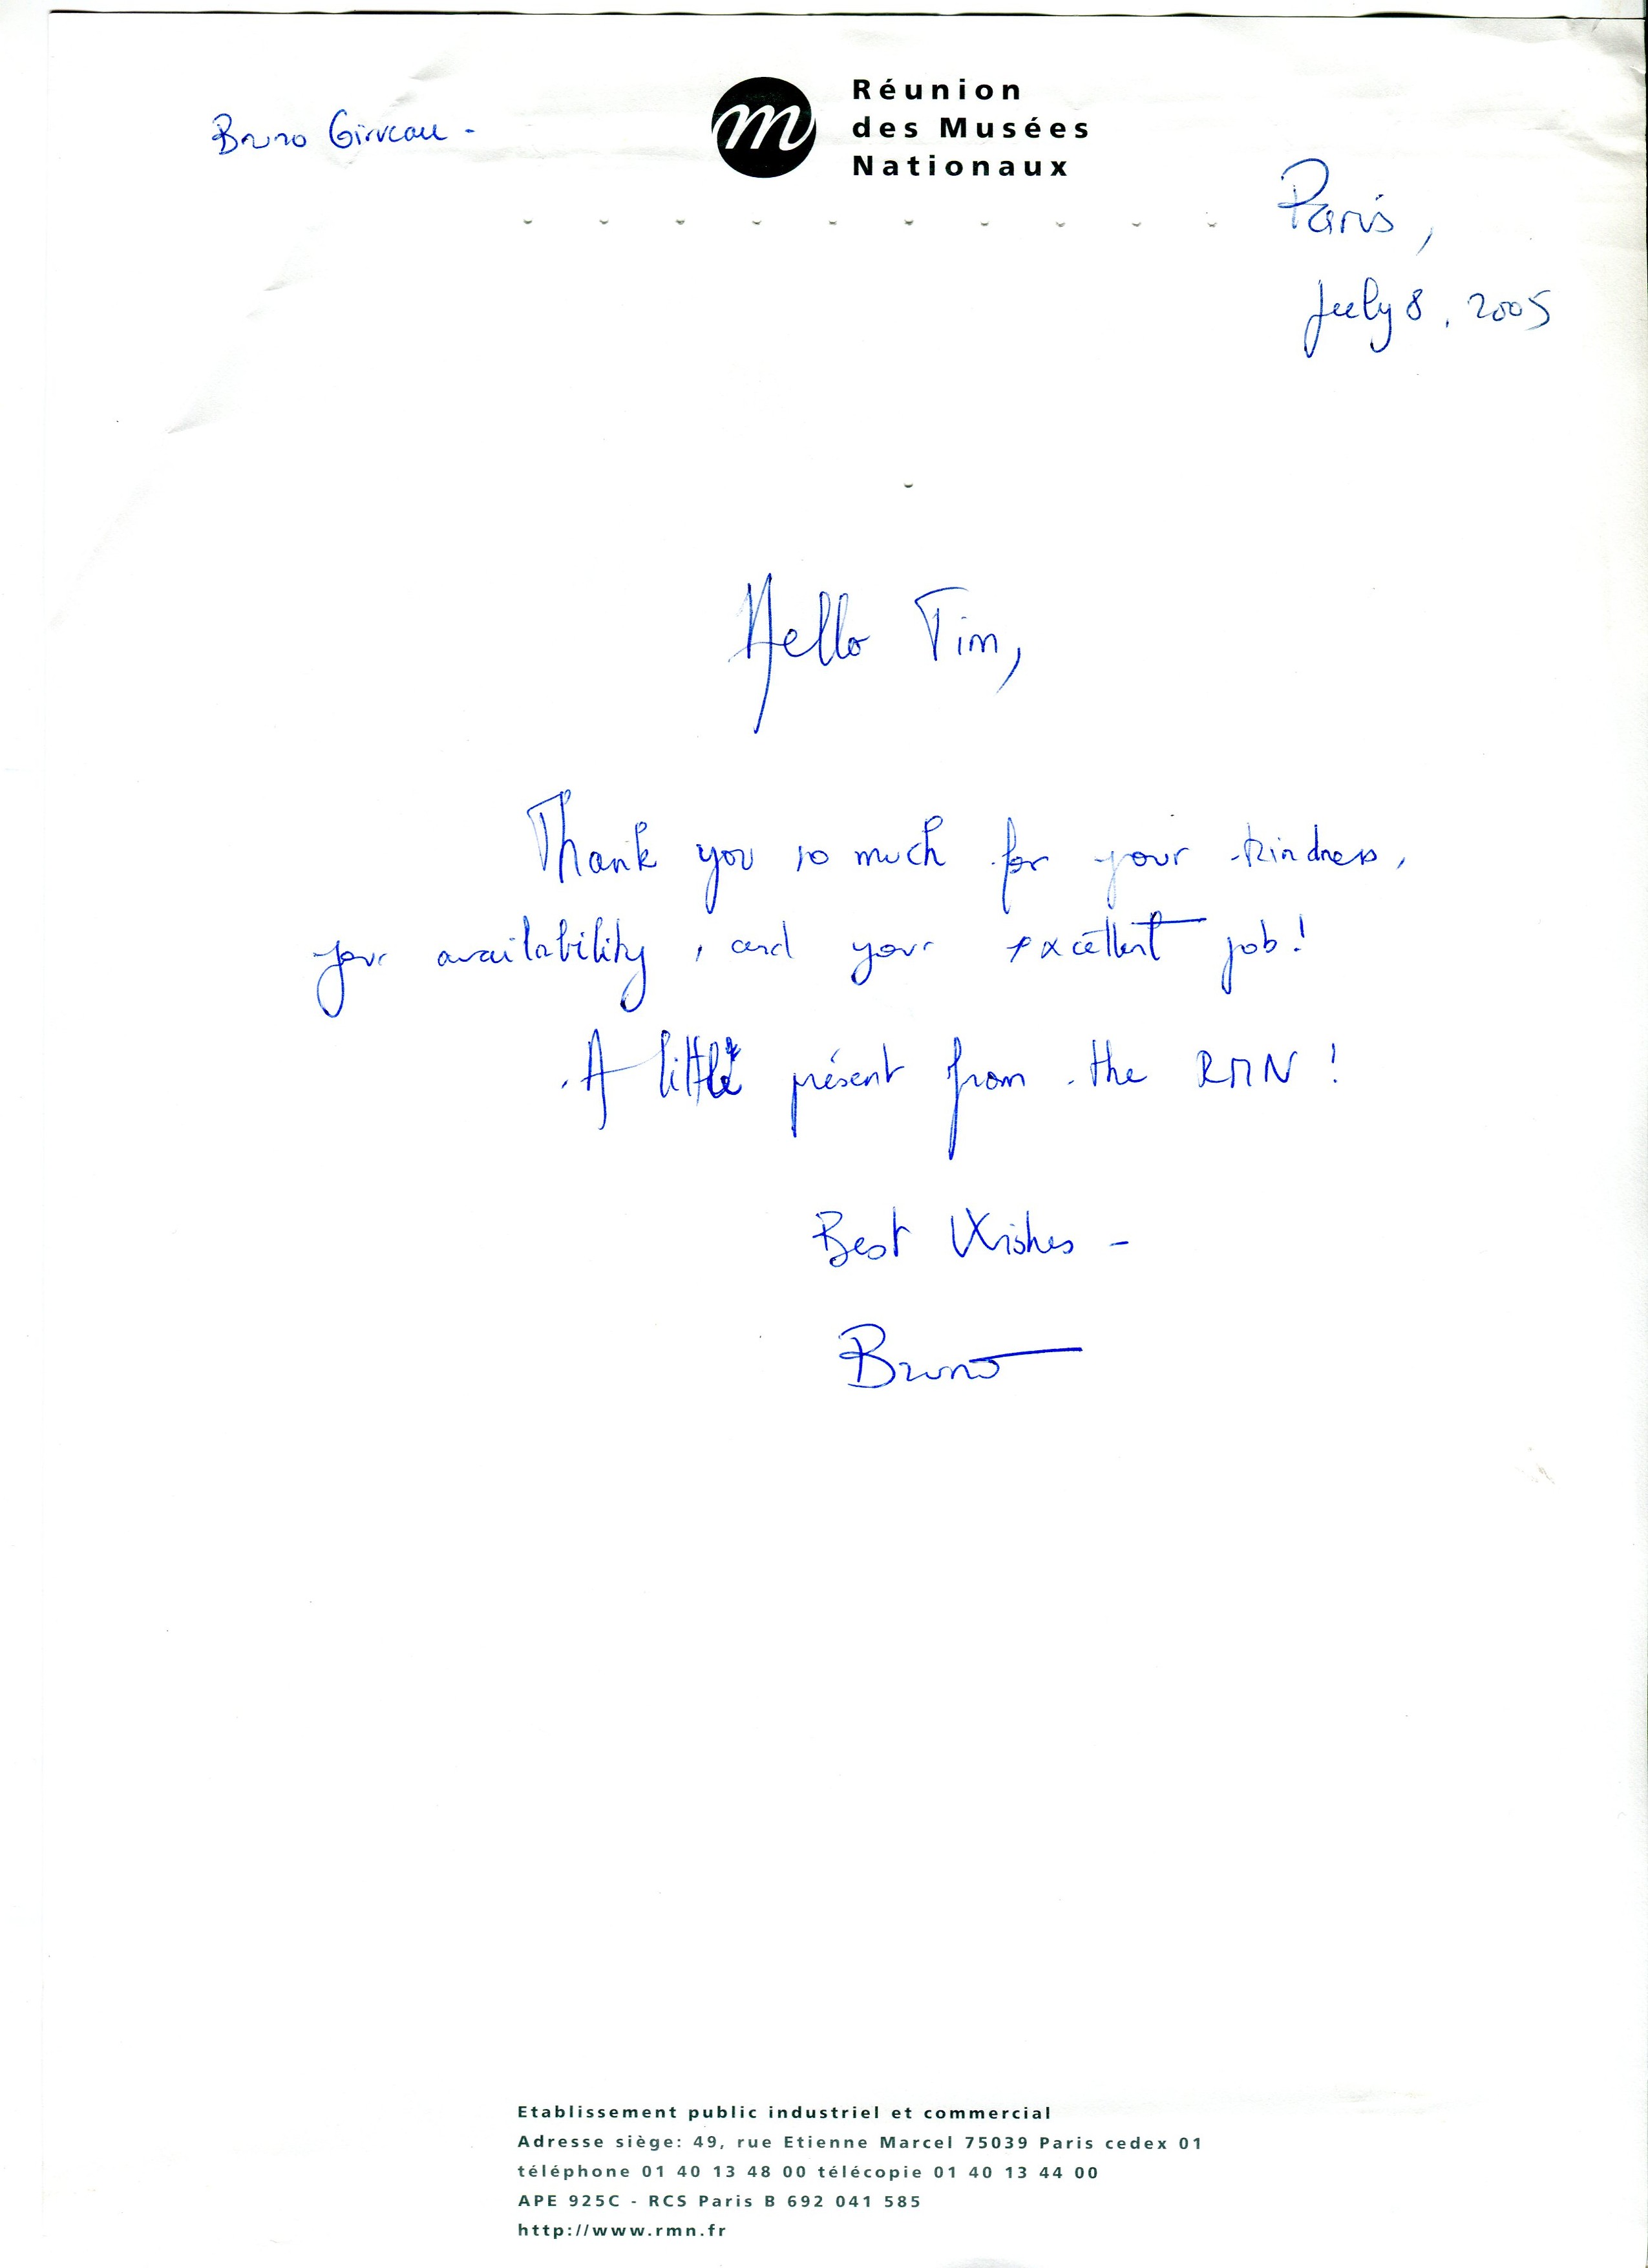 Bruno Girveau -
m
Réunion
des Musées
Nationaux
Paris,
July 8, 2005
Hello Tim,
Thank you so much for your kindness,
your availability, and your excellent job!
A little présent from the RMN !
Best Wishes -
Bruno
Etablissement public industriel et commercial
Adresse siège: 49, rue Etienne Marcel 75039 Paris cedex 01
téléphone 01 40 13 48 00 télécopie 01 40 13 44 00
APE 925C - RCS Paris B 692 041 585
http://www.rmn.fr